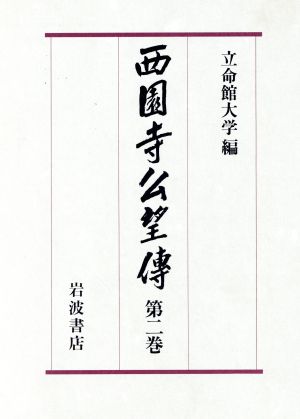 立命館大学編
西園寺公望傳 第二巻
岩波書店